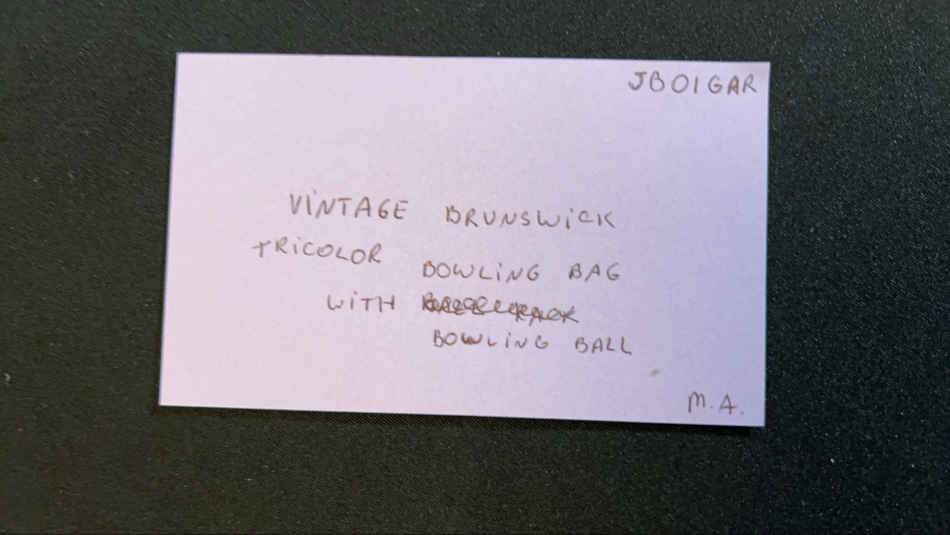 JBOIGAR
VINTAGE BRUNSWICK
TRICOLOR BOWLING BAG
WITH
BOWLING BALL
M.A.